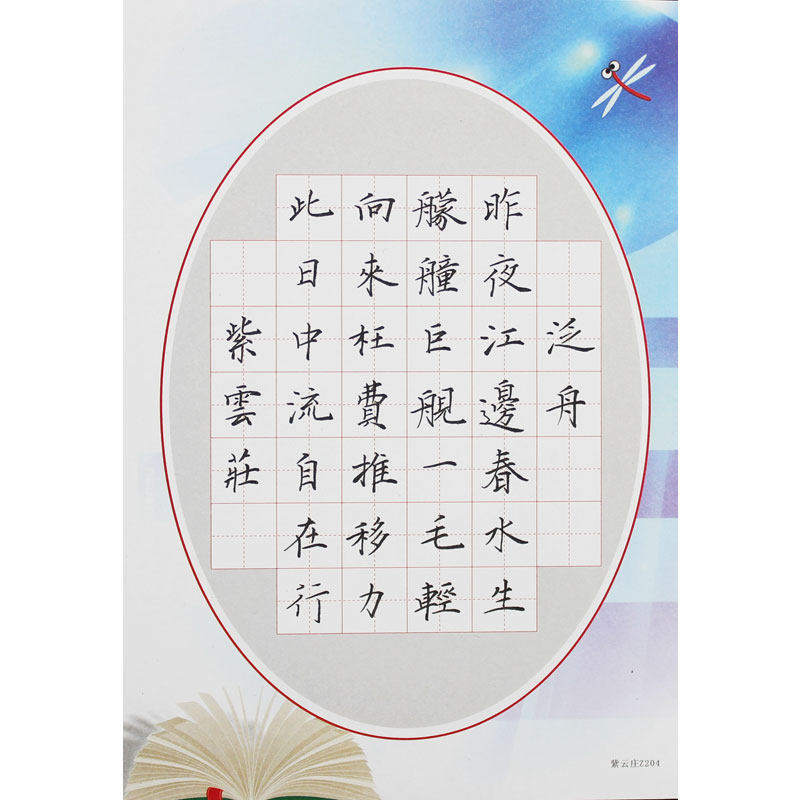 泛舟
昨夜江邊春水生
艨艟巨舰一毛輕
向來枉費推移力
此日中流自在行
紫雲莊
紫云庄Z204